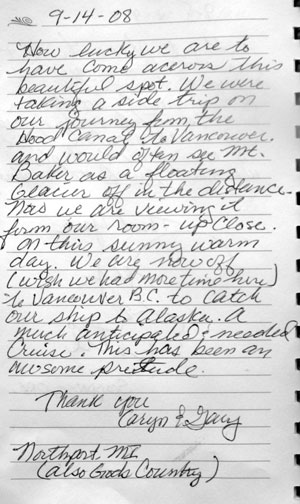 9-14-08
How lucky we are to
have come across this
beautiful spot. We were
taking a side trip on
our journey from the
Hood Canal to Vancouver.
and would often see Mt.
Baker as a floating
Glacier off in the distance.
Now we are viewing it
from our room - up close.
on this sunny warm
day. We are now off
(wish we had more time here)
to Vancouver B.C. to catch
our ship to Alaska. A
much anticipated & needed
Cruise. This has been an
awesome prelude.
Thank you
Caryn & Gary
Northport, MI
(also Gods Country)